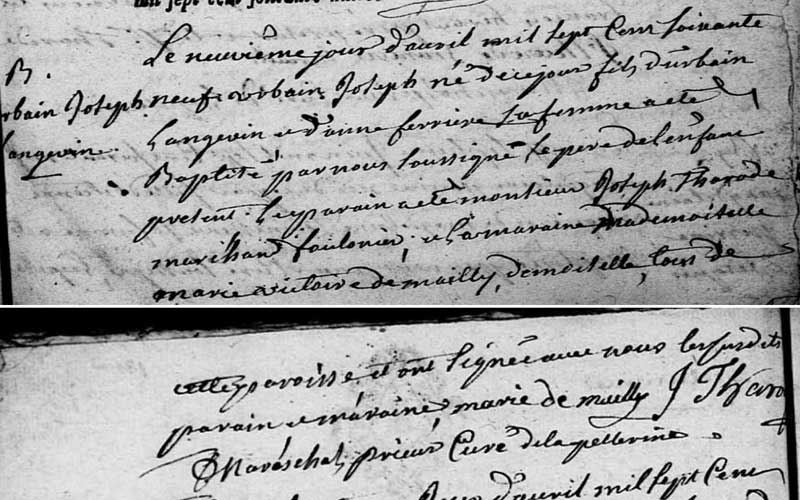 mil sept cent soixante
Le neuvième jour d'avril mil sept Cent soixante
B.
rbain Joseph
neuf urbain Joseph né de ce jour fils d'urbain
Langevin
Langevin et d'anne ferrière sa femme a été
Baptisé par nous soussigné le pere de l'enfant
présent. le parain a été monsieur Joseph Tharode
marchand foulonier, et la maraine Mademoiselle
marie victoire de mailly, demoiselle, tous de
cette paroisse et ont signé avec nous les susdits
parain et maraine marie de mailly J Thar
Mareschal prieur Curé de la pellerine
Jour d'avril mil sept Cent